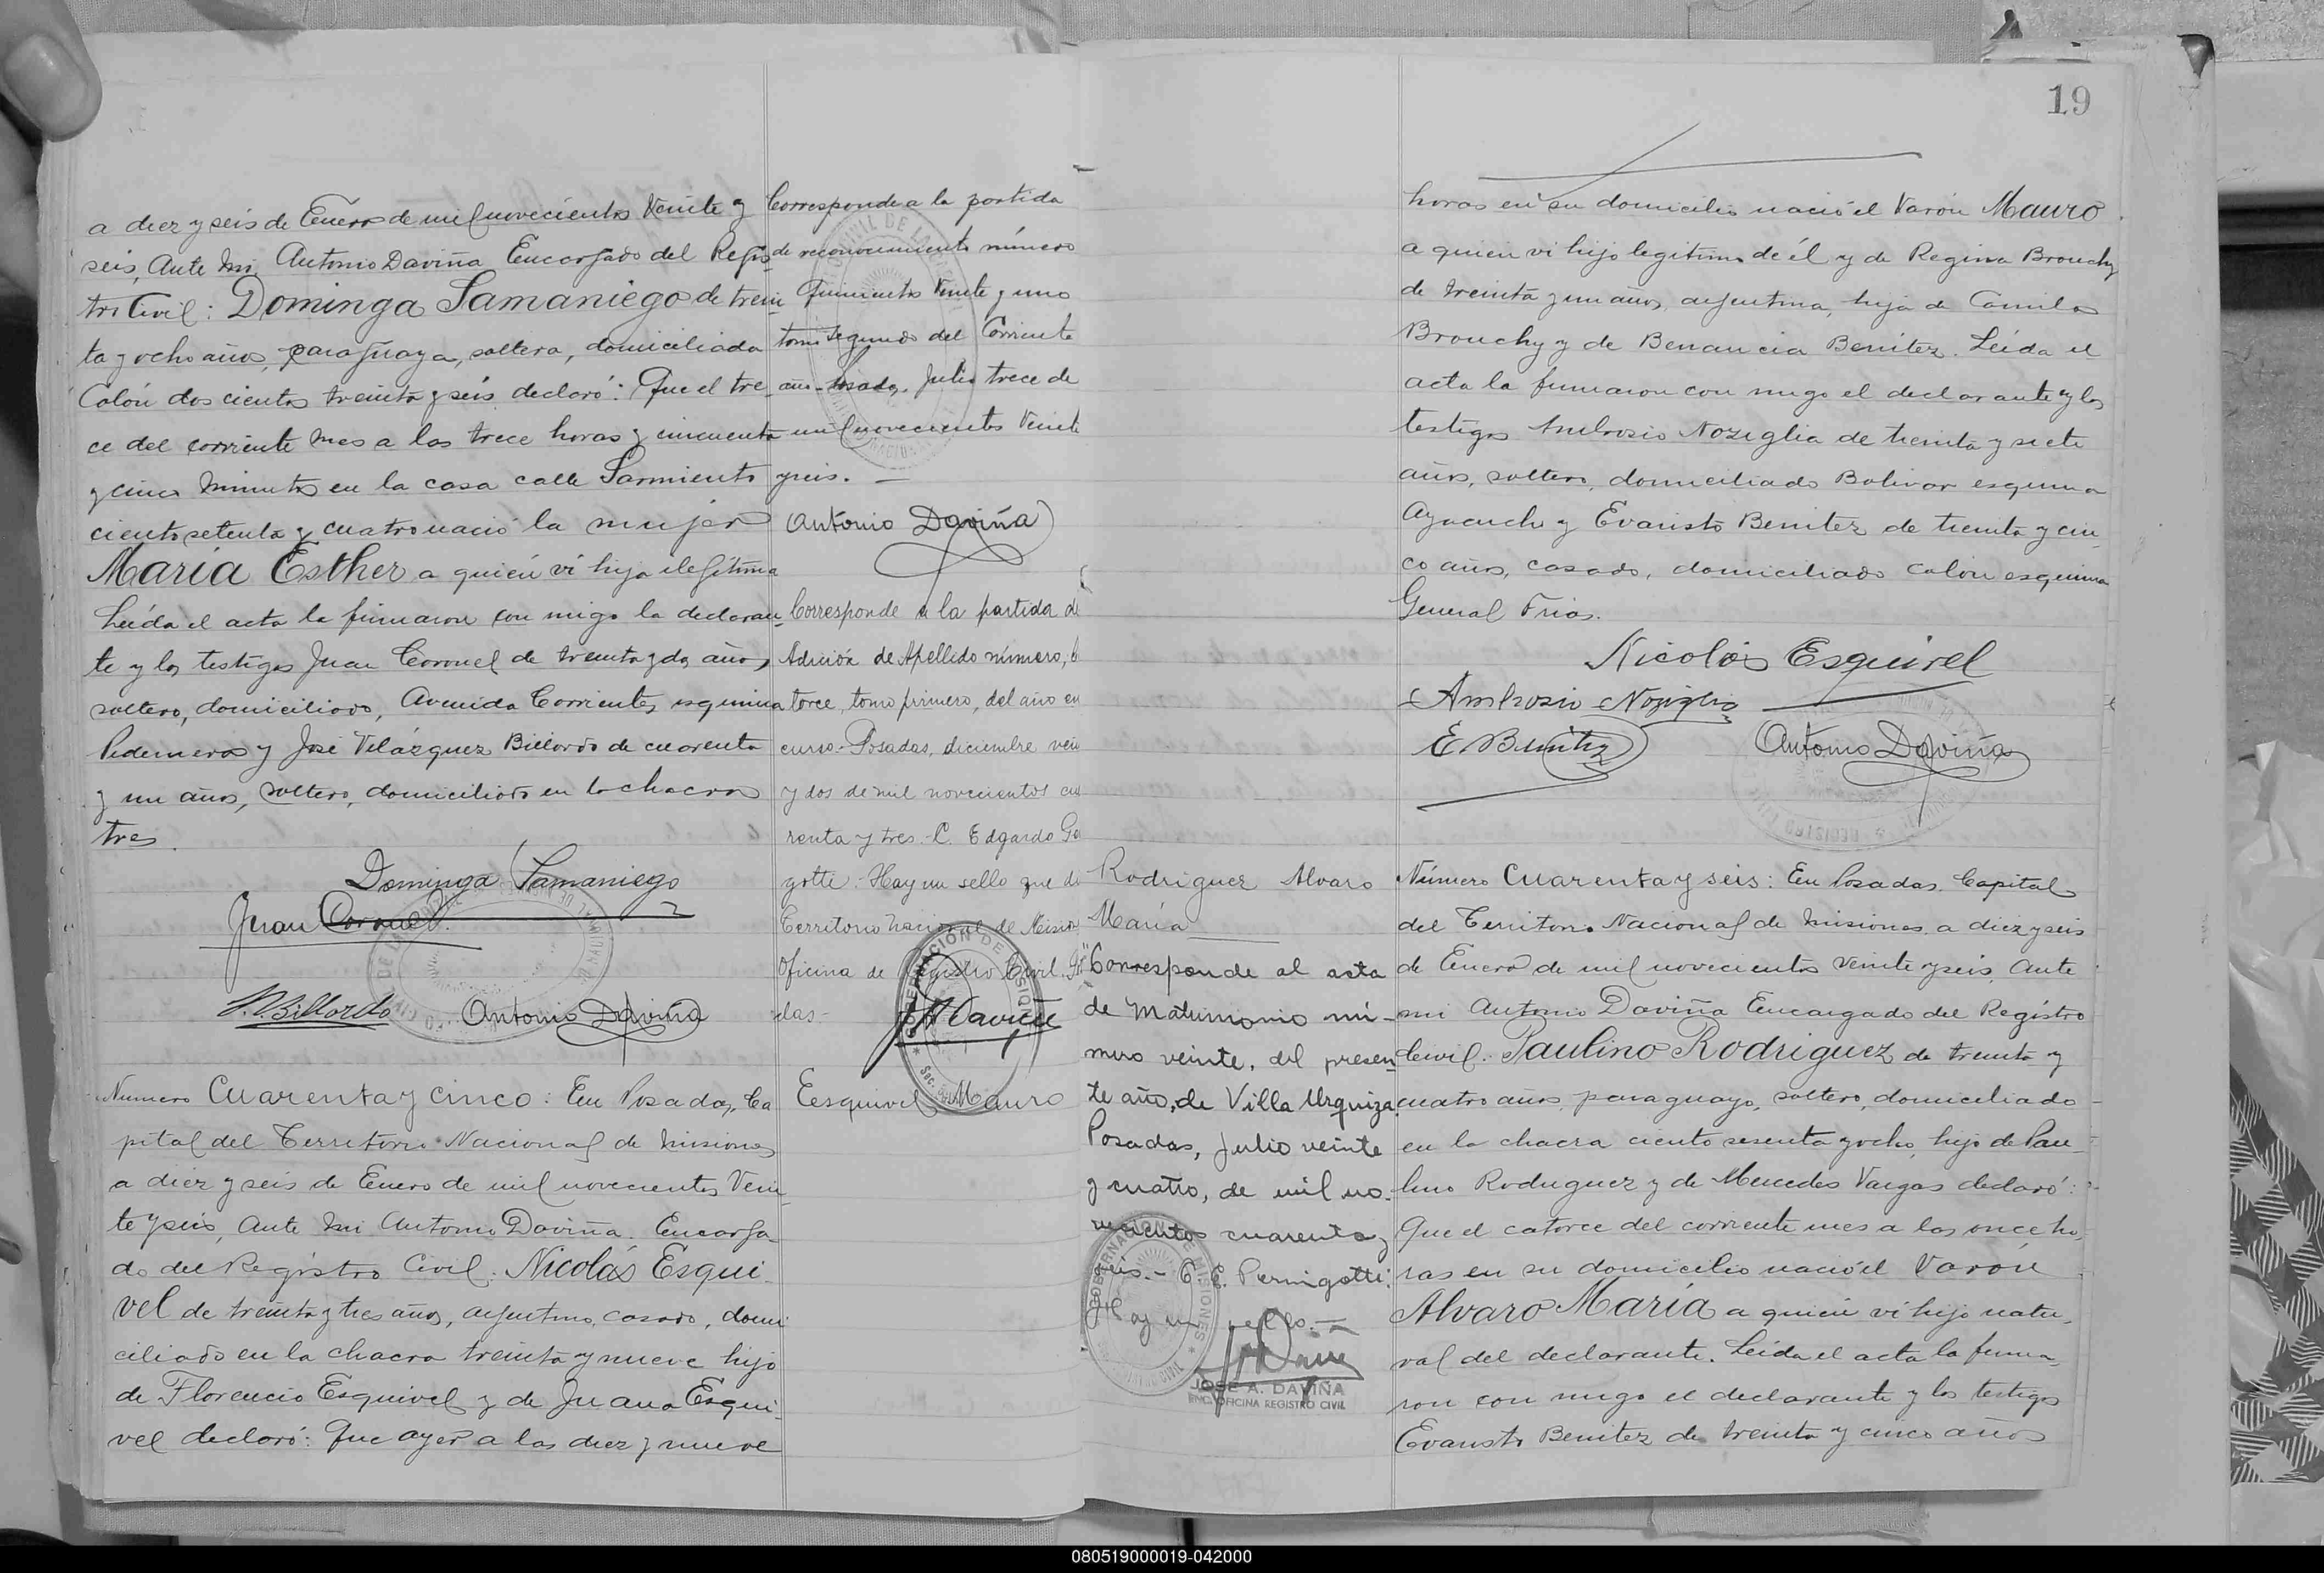 a diez y seis de Enero de mil novecientos Veinte y
seis, Ante mi Antonio Daviña Encargado del Regis-
tro Civil: Dominga Samaniego de trein-
ta y ocho años, paraguaya, soltera, domiciliada
Colón doscientos treinta y seis declaró: Que el tre-
ce del corriente mes a las trece horas y cincuenta
y cinco minutos en la casa calle Sarmiento
ciento setenta y cuatro nació la mujer
María Esther a quién vi hija ilegítima
Leída el acta la firmaron con migo la declaran-
te y los testigos Juan Coronel de treinta y dos años,
soltero, domiciliado, Avenida Corrientes esquina
Pedernera y José Velázquez Billordo de cuarenta
y un años, soltero, domiciliado en la chacra
tres.
Dominga Samaniego
Juan Coronel
V. Billordo Antonio Daviña
Corresponde a la partida
de reconocimiento número
Quinientos Veinte y uno
tomo segundo del Corriente
año. Posadas, Julio trece de
mil novecientos Veinte
y seis. —
Antonio Daviña
Corresponde a la partida de
Adición de Apellido número, 
torce, tomo primero, del año en
curso. Posadas, diciembre vein
y dos de mil novecientos cua
renta y tres. C. Edgardo
Hay un sello que di
Territorio Nacional de Mision
Oficina de Registro Civil.
das-
Numero Cuarenta y cinco: En Posadas, Ca
pital del Territorio Nacional de Misiones
a diez y seis de Enero de mil novecientos Vein-
te y seis, Ante mi Antonio Daviña. Encarga
do del Registro Civil: Nicolás Esqui-
vel de treinta y tres años, argentino, casado, domi
ciliado en la chacra treinta y nueve hijo
de Florencio Esquivel y de Juana Esqui-
vel declaró: Que ayer a las diez y nueve
Eesquivel Mauro
19
horas en su domicilio nació el Varón Mauro
a quien vi hijo legitimo de él y de Regina Brouchy
de treinta y un años, argentina, hija de Camilo
Brouchy y de Benancia Benitez. Leída el
acta la firmaron con migo el declarante y los
testigos Ambrosio Noziglia de treinta y siete
años, soltero, domiciliado Bolivar esquina
Ayacucho y Evaristo Benitez de treinta y cin-
co años, casado, domiciliado Colón esquina
General Frias.
Nicolás Esquivel
Ambrosio Noziglia
E Benitez Antonio Daviña
Rodriguez Alvaro
María
"Corresponde al acta
de matrimonio nú-
mero veinte, del presen-
te año, de Villa Urquiza.
Posadas, Julio veinte
y cuatro, de mil no-
vecientos cuarenta y
seis.- C. E. Pernigotti.
Hay un sello.—
JOSE A. DAVIÑA
ENC. OFICINA REGISTRO CIVIL
Número Cuarenta y seis: En Posadas, Capital
del Territorio Nacional de Misiones a diez y seis
de Enero de mil novecientos veinte y seis, Ante
mi Antonio Daviña Encargado del Registro
Civil: Paulino Rodriguez de treinta y
cuatro años, paraguayo, soltero, domiciliado
en la chacra ciento sesenta y ocho, hijo de Pau-
lino Rodriguez y de Mercedes Vargas declaró:
Que el catorce del corriente mes a las once ho-
ras en su domicilio nació el Varón
Alvaro María a quien vi hijo natu-
ral del declarante. Leída el acta la firma-
ron con migo el declarante y los testigos
Evaristo Benitez de treinta y cinco años
080519000019-042000